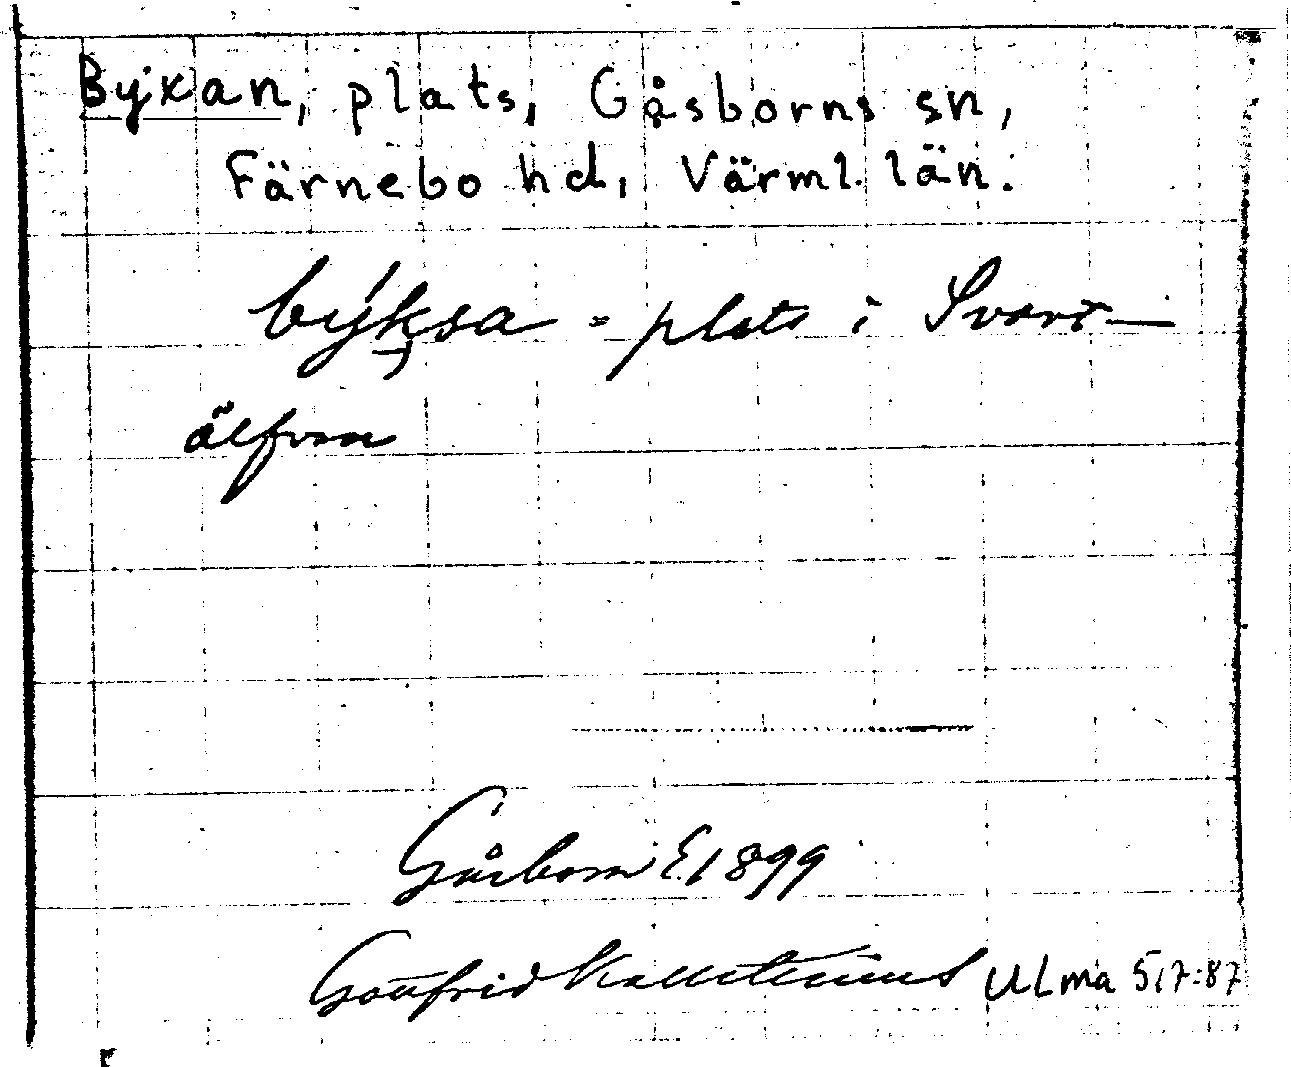 Byxan, plats, Gåsborns sn,
Färnebo hd, Värml. län.
býksa = plats i Svart-
älfven
Gåsborn E. 1899
Gottfrid Kallstenius ULMA 517:87